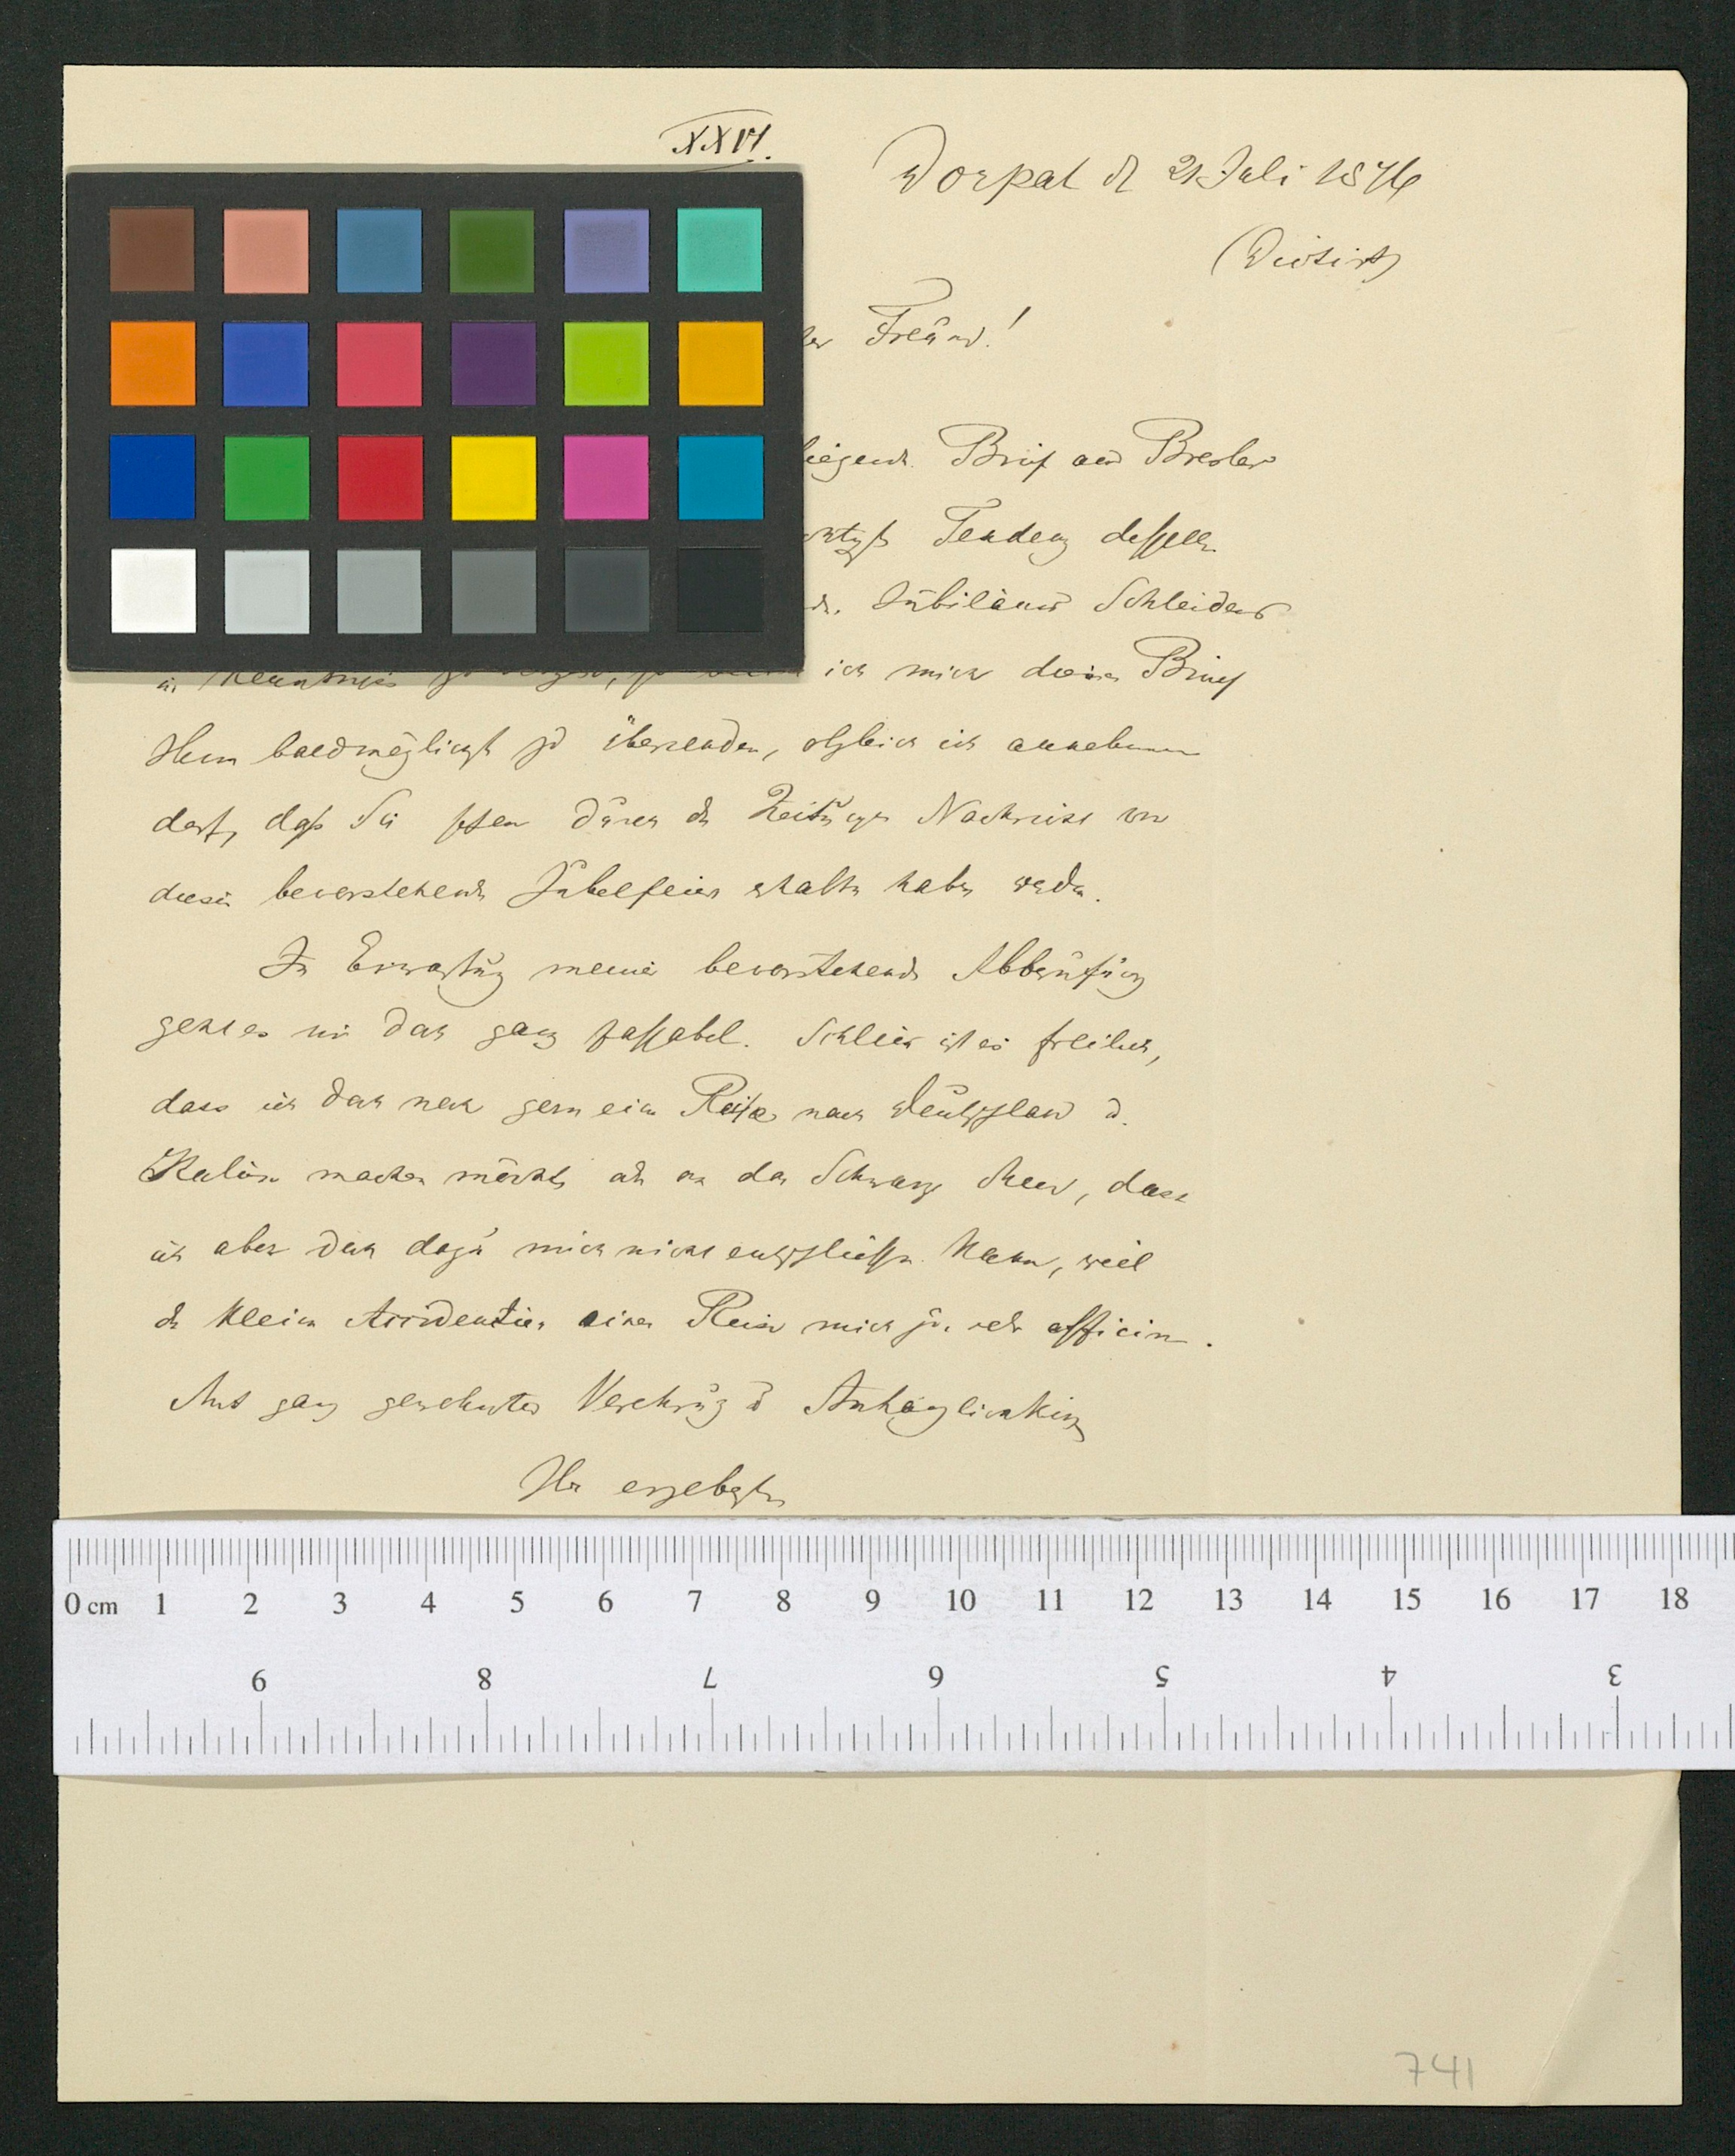 XXVI.
Dorpat d 21 Juli 1876
(Dictirt)
Freund!
liegende Brief aus Breslau
Tendenz desselben
Jubiläum Schleidens
ich mich diesen Brief
Ihnen baldmöglichst zu übersenden, obgleich ich annehmen
darf, daß Sie schon durch die Zeitungen Nachricht von
dieser bevorstehenden Jubelfeier erhalten haben werden.
In Erwartung meiner bevorstehenden Abberufung
geht es mir doch ganz passabel. Schlimm ist es freilich,
dass ich doch noch gern eine Reise nach Deutschland u.
Italien machen möchte oder an das Schwarze Meer, dass
ich aber doch dazu mich nicht entschließen kann, weil
die kleinen Accidentien einer Reise mich zu sehr afficiren.
Mit ganz gewohnter Verehrung u Anhänglichkeit
Ihr ergebenster
0 cm 1 2 3 4 5 6 7 8 9 10 11 12 13 14 15 16 17 18
9 8 7 6 5 4 3
741